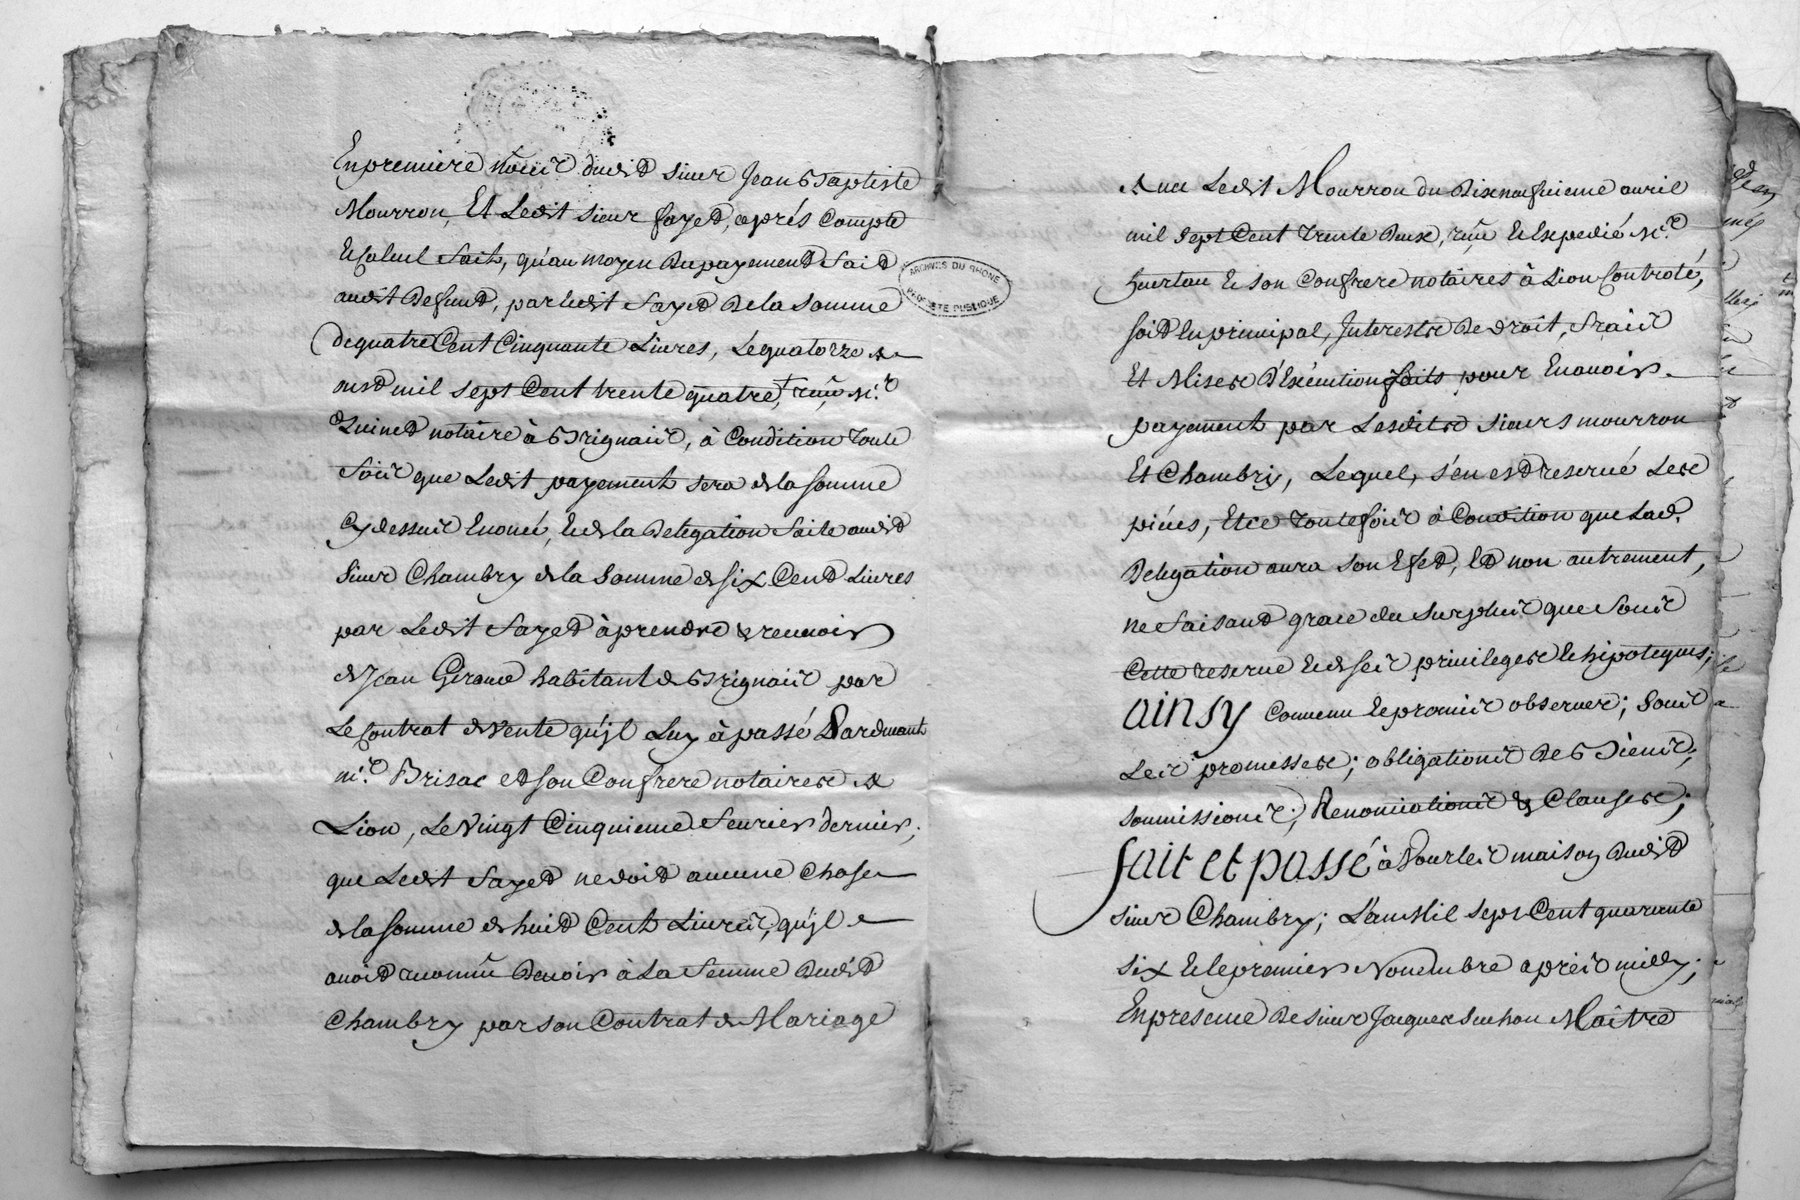 En premiere nôces dudit sieur Jean Baptiste
Mourron, Et Ledit sieur fayet, après Compte
Et Calcul fait, qu'au moyen du payement fait
audit Defunt, par ledit fayet De la somme
de quatre Cent Cinquante Livres, Le quatorze
aoust mil sept Cent trente quatre, reçu Me.
Quinet notaire à Brignais, à Condition toute
fois que Ledit payement sera de la somme
Cy dessus Enoncé, Et de la Delegation faite audit
sieur Chambry de la somme de six Cent Livres
par Ledit fayet à prendre & recevoir
de Jean Giraud habitant de Brignais par
Le Contrat de Vente qu'jl Luy à passé Pardevant
me. Brisac et son Confrere notaires à
Lion, Le Vingt Cinquieme fevrier dernier;
que Ledit fayet ne doit aucune chose
de la somme de huit Cent Livres, qu'jl
avoit reconnu Devoir à La femme Dudit
Chambry par son Contrat de Mariage
ARCHIVES DU RHONE
PROPRIETE PUBLIQUE
avec Ledit Mourron du Dixneufvieme avril
mil sept Cent trente Deux, reçu Et Expedié Me.
et son Confrere notaires à Lion Controlé,
soit En principal, Interests De droit, fraix
Et Mises D'Exécution faits pour En avoir
payement par Lesdits sieurs mourron
Et Chambry, Lequel, s'en est reservé Les
pieces, Et ce toutefois à Condition que Lad.
Delegation aura son Efet, Et non autrement,
ne faisant grace du surplus que sous
Cette reserve Et de ses privileges Et hipoteques;
ainsy Convenu Et promis observer; sous
Les promesses; obligations De Biens;
soumissions; Renonciations & Clauses;
fait et passé à Vourles maison Dudit
sieur Chambry; L'an Mil sept Cent quarante
six Et le premier Novembre après midy;
En presence De sieur Jacques Suchon Maitre